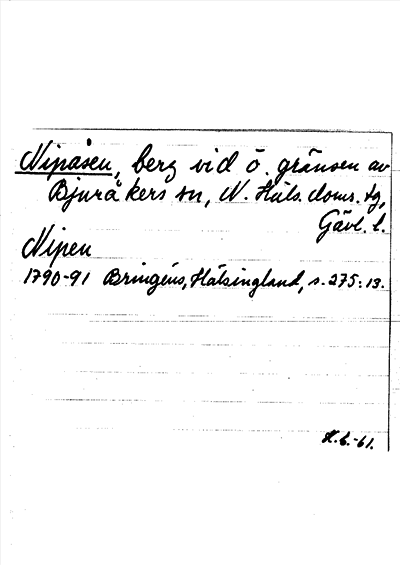 Nipåsen, berg vid ö. gränsen av
Bjuråkers sn, N. Häls. doms. tg,
Gävl. l.
Nipen
1790-91 Bringéus, Hälsingland, s. 275: 13.
H.b.-61.